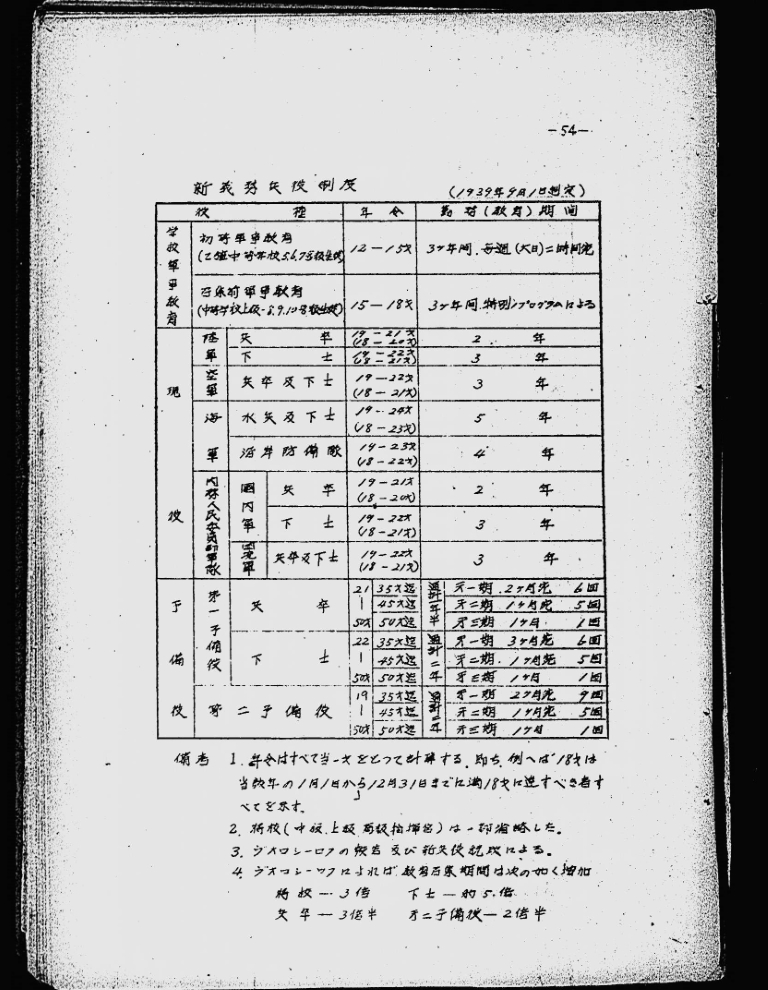 -54-
新義務兵役制度 (1939年9月1日制定)
役種 年令 勤務(教育)期間
学校軍事教育 初等軍事教育 12-15才 3ケ年間.毎週(六日)二時間宛
(乙種中等学校5,6,7号級生徒)
召集前軍事教育 15-18才 3ケ年間.特別プログラムによる
(中等学校上級-8.9.10号級生徒)
現役 陸軍 兵卒 19-21才 (18-20才) 2年
下士 19-22才 (18-21才) 3年
空軍 兵卒及下士 19-22才 (18-21才) 3年
海軍 水兵及下士 19-24才 (18-23才) 5年
沿岸防備隊 19-23才 (18-22才) 4年
内務人民委員部軍隊 國内軍 兵卒 19-21才 (18-20才) 2年
下士 19-22才 (18-21才) 3年
軍 兵卒及下士 19-22才 (18-21才) 3年
予備役 第一予備役 兵卒 21-50才 35才迄 通計一年半 第一期 2ケ月宛 6回
45才迄 第二期 1ケ月宛 5回
50才迄 第三期 1ケ月 1回
下士 22-50才 35才迄 通計二年 第一期 3ケ月宛 6回
45才迄 第二期 1ケ月宛 5回
50才迄 第三期 1ケ月 1回
第二予備役 19-50才 35才迄 通計二年 第一期 2ケ月宛 9回
45才迄 第二期 1ケ月宛 5回
50才迄 第三期 1ケ月 1回
備考 1. 年令はすべて当一才をとつて計算する.即ち.例へば18才は
当該年の1月1日から12月31日までに満18才に達すべき者す
べてを示す。
2. 将校(中級.上級高級指揮官)は一部省略した。
3. ヴオロシーロフの報告及び新兵役 による。
4. ヴオロシーロフによれば.教育召集期間は次の如く増加
将校-3倍 下士-約5.倍
兵卒-3倍半 第二予備役-2倍半